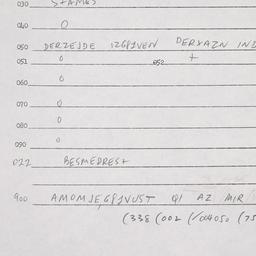 030
040 0
050 DERZEJDE IZGPIVEN DERYAZN IND
051 0 052 +
060 0
070 0
080 0
090 0
022 BESMEDREST
900 AMOMJEGPIVUST QI AZ MIR
(338 (002 (75